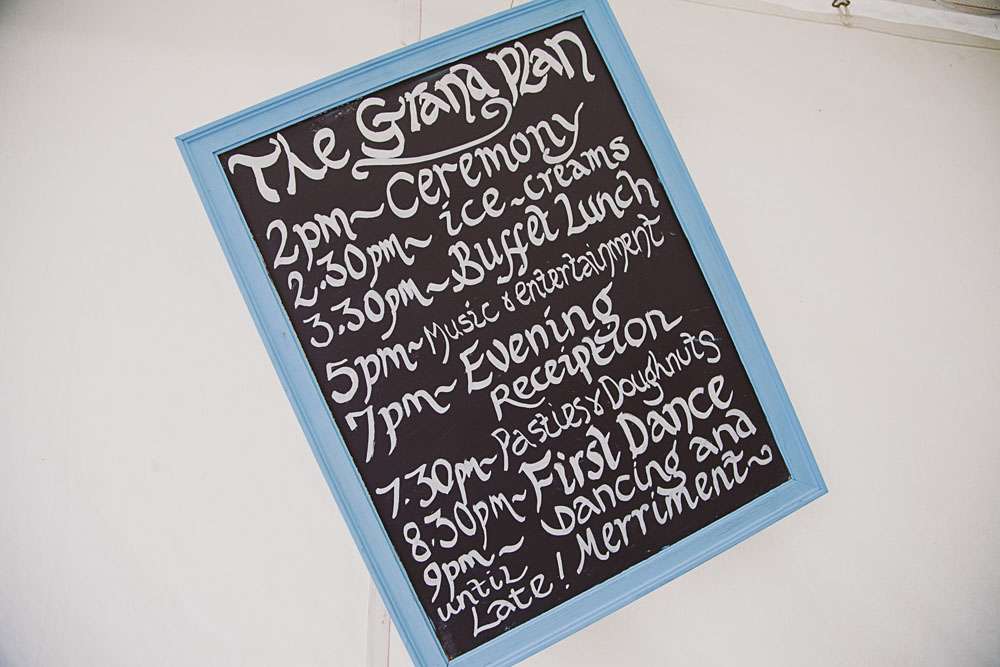 The Grand Plan
2pm~ Ceremony
2.30pm~ ice-creams
3.30pm~ Buffet Lunch
5pm~ Music & entertainment
7pm~ Evening
Receiption
7.30pm~ Pasties & Doughnuts
8:30pm~ First Dance
9pm~ Dancing and
until Merriment~
Late!